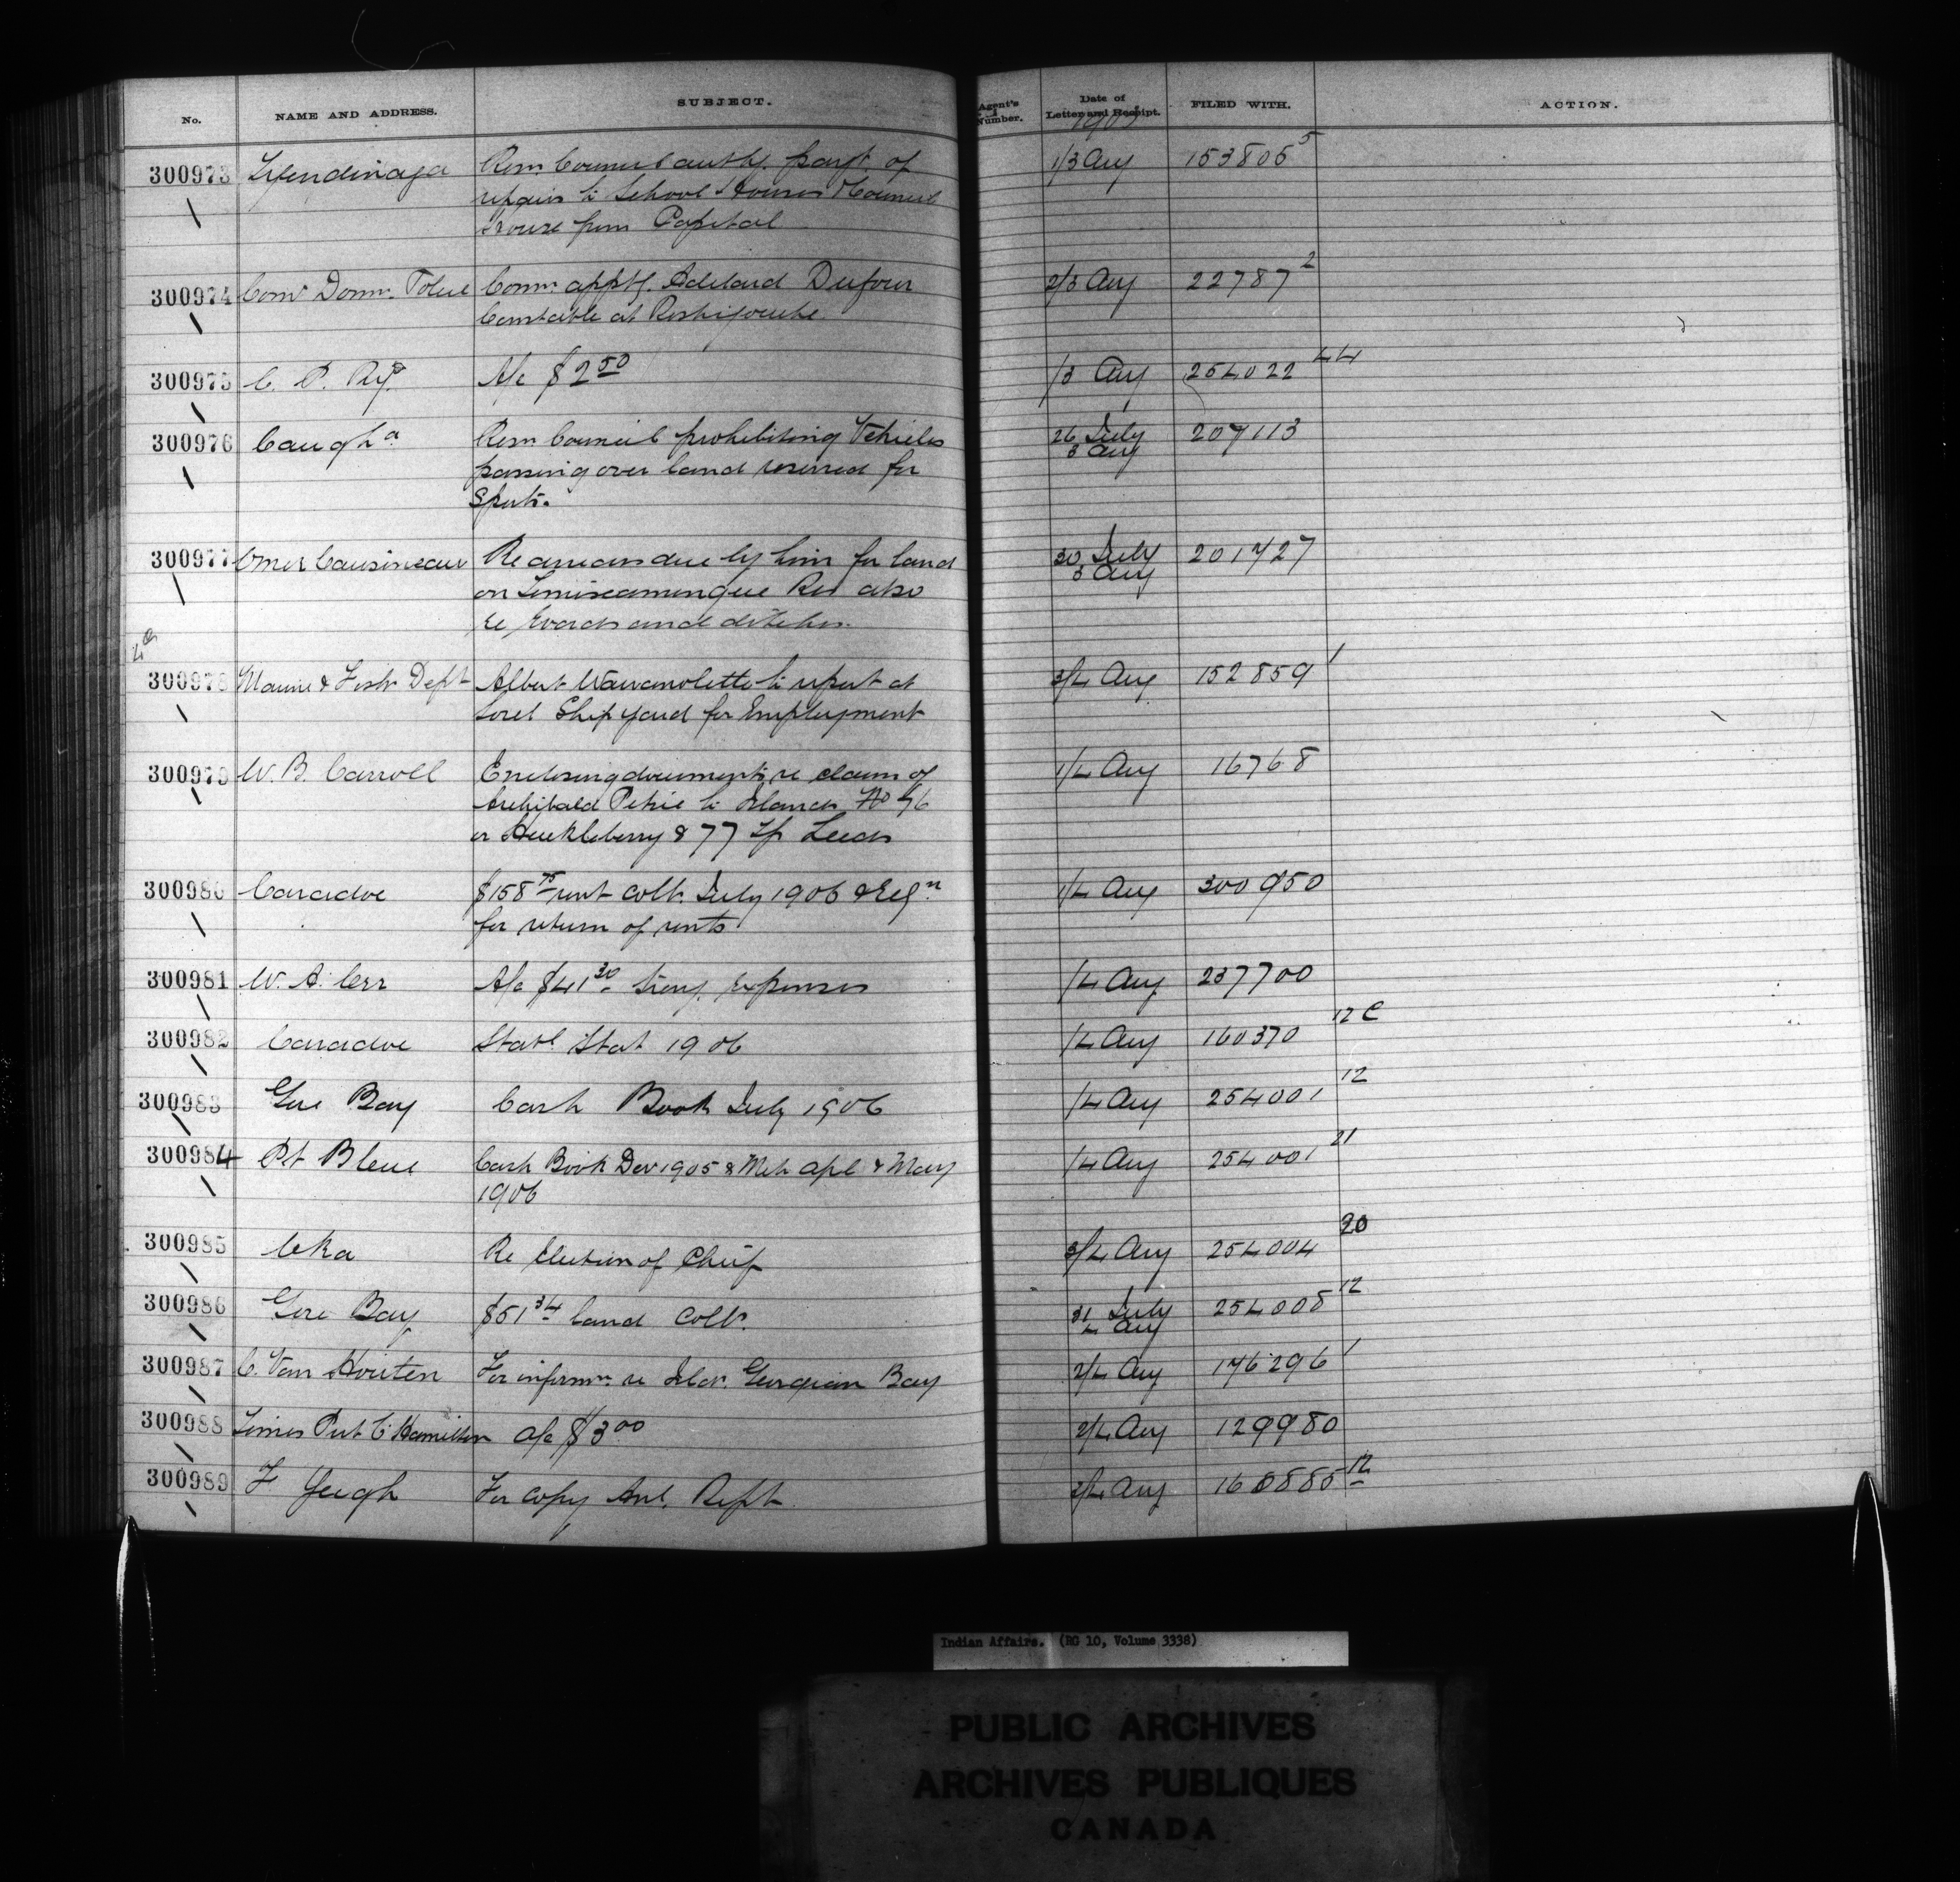 No. NAME AND ADDRESS. SUBJECT. Agent's Number. Date of Letter and Receipt. FILED WITH. ACTION.
300973 Tyendinaga Resn Council authg. payt of 1/3 Aug 153805 5
repairs to School Houses & Council
House from Capital
300974 Comr Domn. Police Comn. apptg. Adelard Dufour 2/3 Aug 22787 2
Constable at Restigouche
300975 C. P. Ry. A/c $2 50 1/3 Aug 254022 44
300976 Caugha Resn Council prohibiting Vehicles 26 July 207113
passing over land reserved for 3 Aug
Sports.
300977 Omer Cousineau Re arrears due by him for land 30 July 201727
on Temiscamingue Res also 3 Aug
re roads and ditches.
300978 Marine & Fish Dept Albert to report at 3/4 Aug 152859 1
Sorel Ship yard for Employment
300979 W. B. Carroll Enclosing documents re claim of 1/4 Aug 16768
Archibald Petrie to Islands No 76
or Huckleberry & 77 Tp Leeds
300980 Caradoc $158 75 rent colln. July 1906 & Reqn 1/4 Aug 300950
for return of rents
300981 W. A. Orr A/c $41 30 trav. expenses /4 Aug 237700
300982 Caradoc Statl Stat 1906 /4 Aug 160370 12 C
300983 Gore Bay Cash Book July 1906 /4 Aug 254001 12
300984 Pt Bleue Cash Book Dec 1905 & Mch Apl & May /4 Aug 254001 21
1906
300985 Oka Re Election of Chief 3/4 Aug 254004 20
300986 Gore Bay $51 34 land colln. 31 July 254008 12
4 Aug
300987 C. Van Houten For informn. re Islds. Georgian Bay 2/4 Aug 176296 1
300988 Times Ptg Co Hamilton A/c $3 00 2/4 Aug 129980
300989 F Yeigh For copy Anl. Rept 2/4 Aug 12
Indian Affairs. (RG 10, Volume 3338)
PUBLIC ARCHIVES
ARCHIVES PUBLIQUES
CANADA